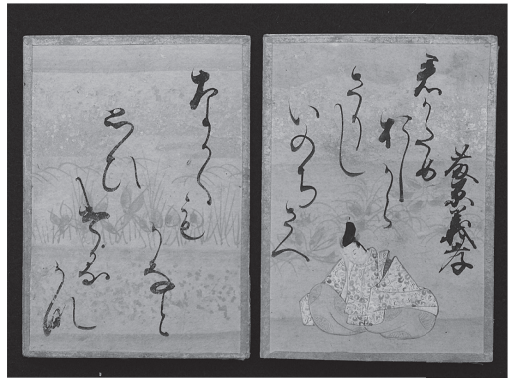 藤原義孝
君かため
おしから
さりし
いのちさへ
なかくも
かなと
思ひ
ける
かな